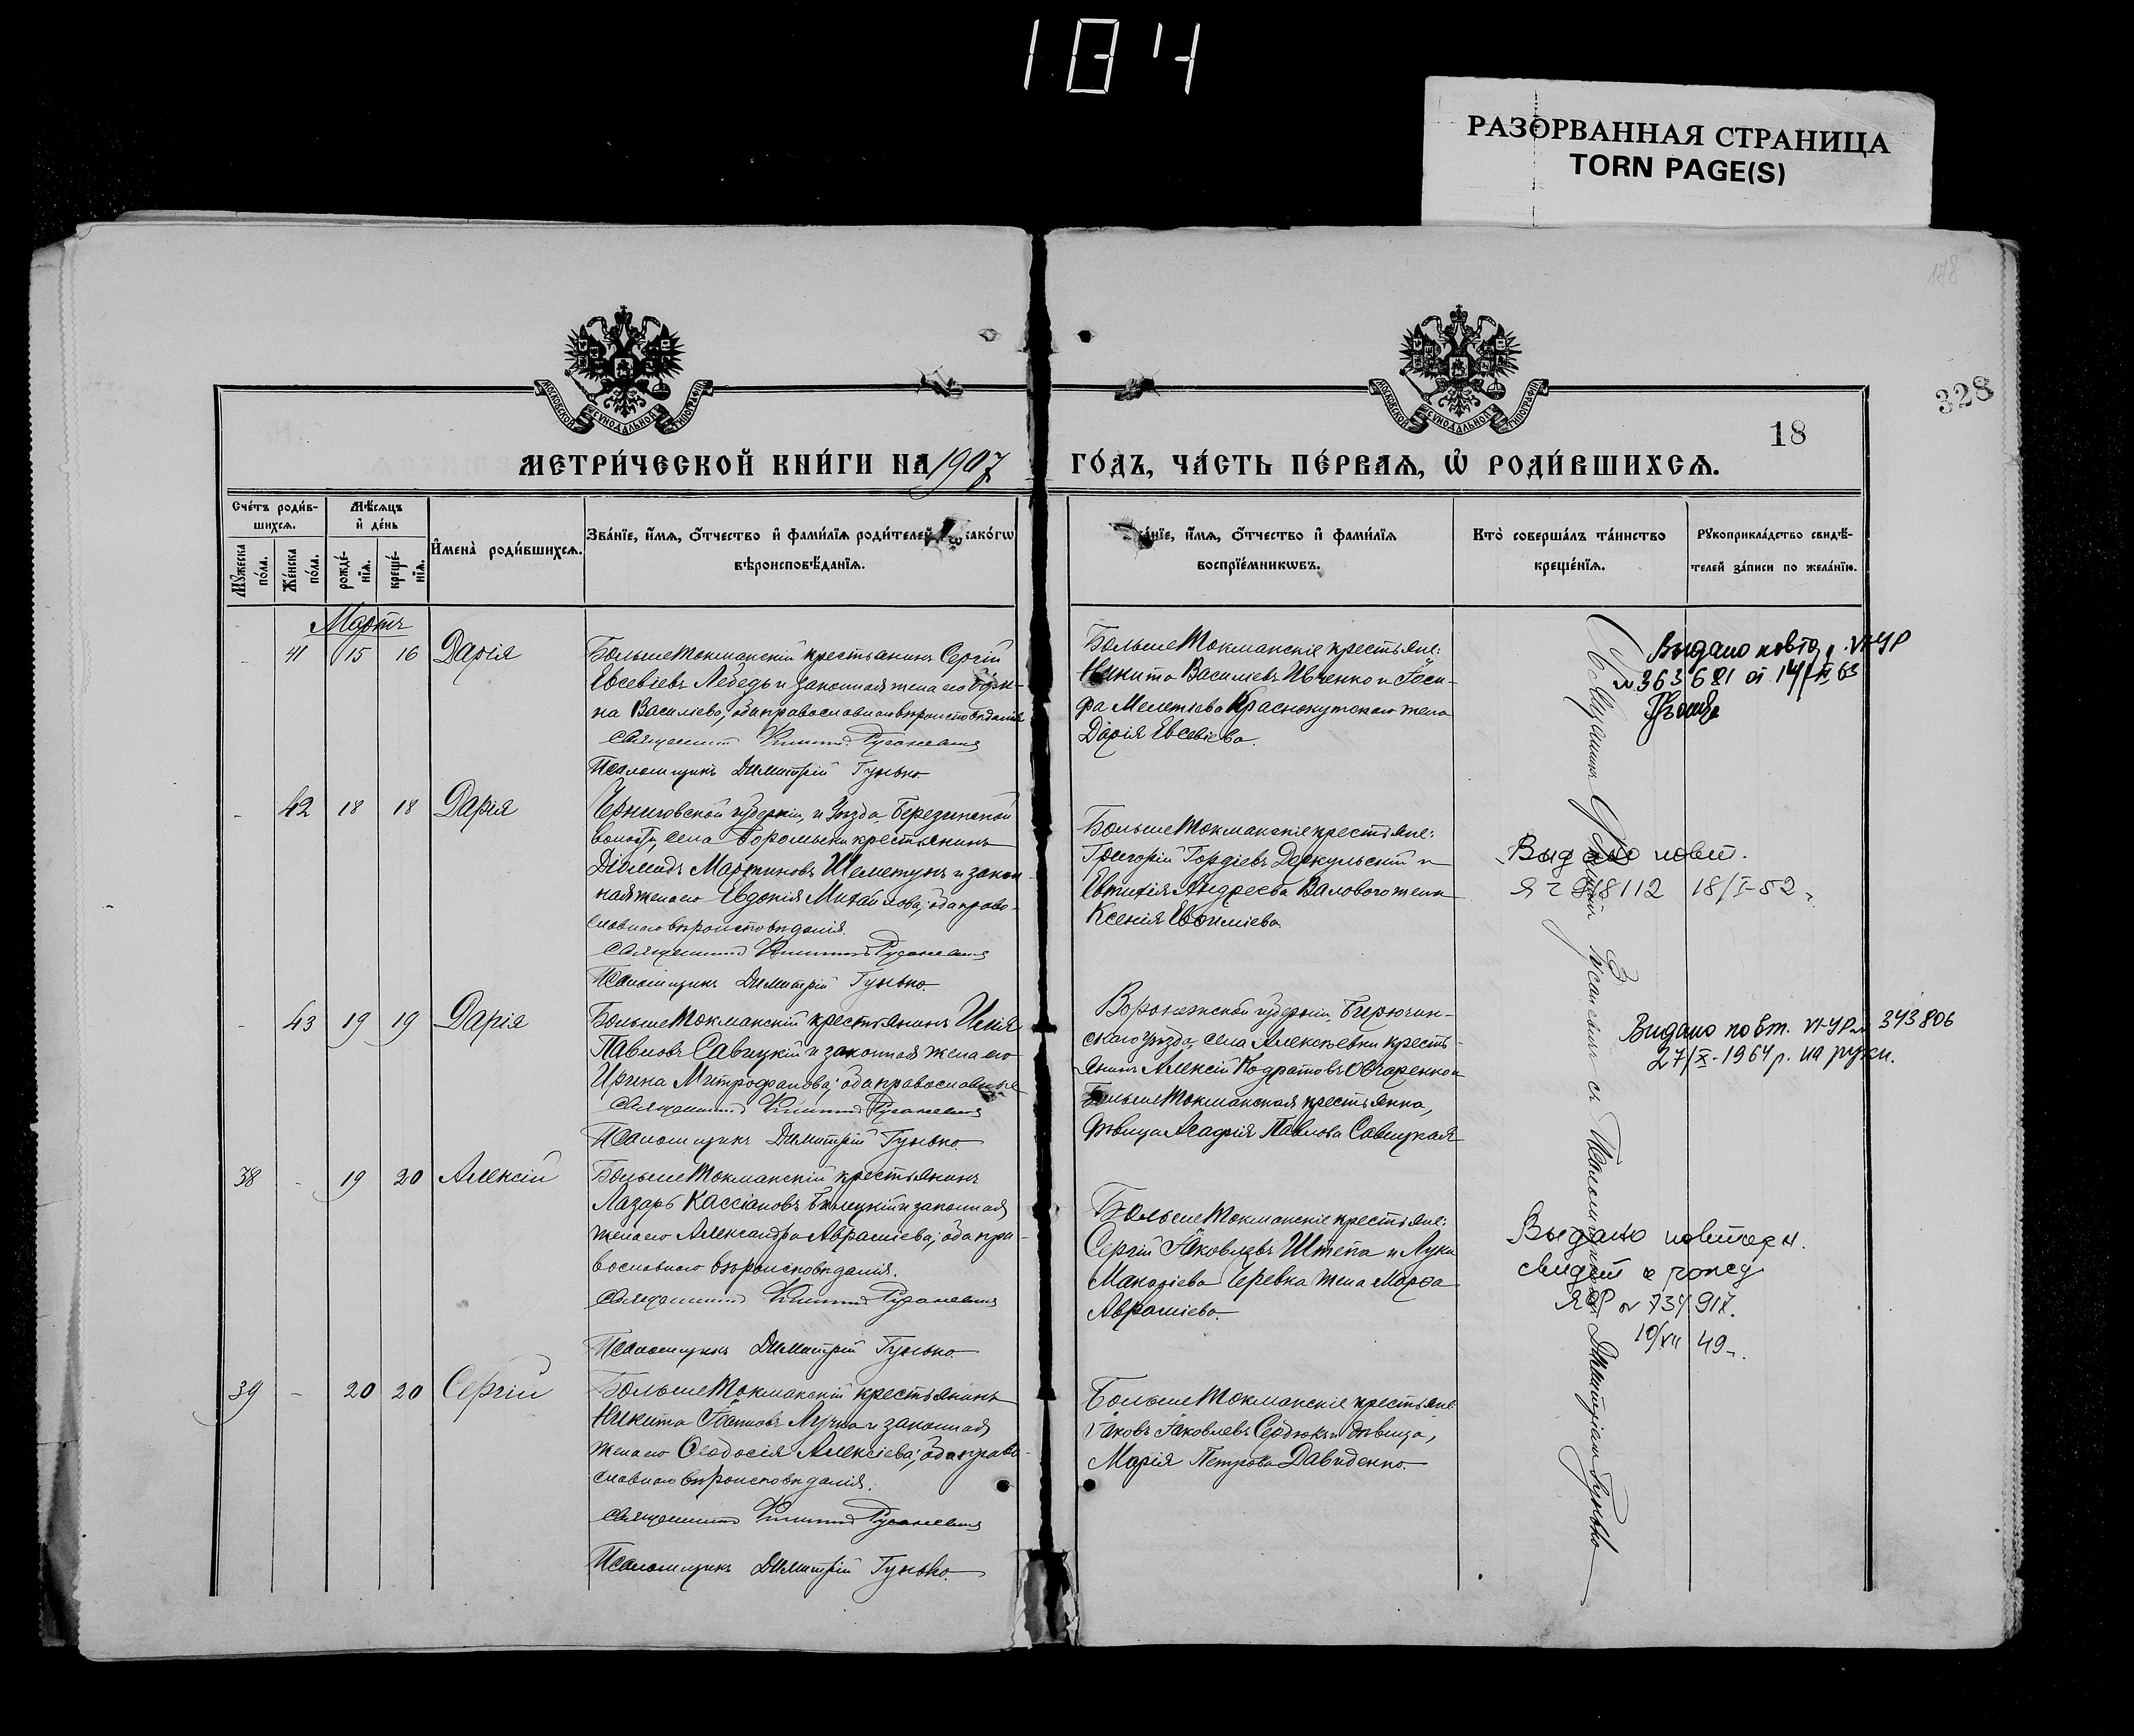 184
РАЗОРВАННАЯ СТРАНИЦА
TORN PAGE(S)
178
328
18
МОСКОВСКОЙ СѴНОДАЛЬНОЙ ТИПОГРАФІИ
МОСКОВСКОЙ СѴНОДАЛЬНОЙ ТИПОГРАФІИ
МЕТРИ́ЧЕСКОЙ КНИ́ГИ НА 1907 ГО́ДЪ, ЧА́СТЬ ПЕ́РВАѦ, Ѡ҆ РОДИ́ВШИХСѦ.
Сче́тъ роди́в-
шихсѧ.
Мѣ́сѧцъ
и҆ де́нь
Мꙋ́жеска
по́ла.
Же́нска
по́ла.
рожде́-
нїѧ.
креще́-
нїѧ.
И҆мена̀ роди́вшихсѧ.
Зва́нїе, и҆́мѧ, ѻ҆́тчество и҆ фами́лїѧ роди́телей како́гѡ
вѣроисповѣ́данїѧ.
а́нїе, и҆́мѧ, ѻ҆́тчество и҆ фами́лїѧ
воспрїе́мникѡвъ.
Кто̀ соверша́лъ та́инство
креще́нїѧ.
Рꙋкоприкла́дство свидѣ́-
телей за́писи по жела́нїю.
Мартъ
- 41 15 16 Дарія
Больше Токмакскій крестьянинъ Сергій
Евсевіевъ Лебедь и законная жена его
на Василіева, оба православнаго вѣроисповѣданія
Священникъ
Псаломщикъ Димитрій Гунько
Больше Токмакскіе крестьяне:
Никита Василіевъ Ивченко и Іоси-
фа Мелетіева Краснокутскаго жена
Дарія Евсевіева.
Выдано повто
363681 от 14/ 63
- 42 18 18 Дарія
Черниговской губерніи, и уѣзда Березинской
волости, села крестьянинъ
Діомидъ Мартиновъ Шеметунъ и закон-
ная жена его Евдокія Михайлова; оба право-
славнаго вѣроисповѣданія.
Священникъ
Псаломщикъ Димитрій Гунько.
Больше Токмакскіе крестьяне:
Григорій Гордіевъ Деркульскій и
Евтихія Андреева Валового жена
Ксенія Евфиміева.
Выдано повт.
818112 18/I-52
- 43 19 19 Дарія
Больше Токмакскій крестьянинъ Илія
Павловъ Савицкій и законная жена его
Ирина Митрофанова; оба православные
Священникъ
Псаломщикъ Димитрій Гунько.
Воронежской губерніи, Бирючин-
скаго уѣзда, села Алексѣевки кресть-
янинъ Алексій Кодратовъ Овчаренко и
Больше Токмакская крестьянка,
дѣвица Агафія Павлова Савицкая
Видано повт. VI-УР № 343806
27/X-1964 р. на руки.
38 - 19 20 Алексій
Больше Токмакскій крестьянинъ
Лазарь Кассіановъ Билецкій и законная
жена его Александра Аврамiева; оба пра-
вославнаго вѣроисповѣданія.
Священникъ
Псаломщикъ Димитрій Гунько.
Больше Токмакскіе крестьяне:
Сергій Іаковлевъ Штепа и Луки
Макаріева Черевка жена Марѳа
Аврамiева.
Выдано повторн.
свидет о рожд
ЯР № 734917.
10/VII 49
39 - 20 20 Сергій
Больше Токмакскій крестьянинъ
Никита Лучка и законная
жена его Ѳеодосія Алексіева; оба право-
славнаго вѣроисповѣданія.
Священникъ
Псаломщикъ Димитрій Гунько.
Больше Токмакскіе крестьяне
Іаковъ Іаковлевъ Сердюкъ и дѣвица,
Марія Петрова Давиденко.
Священникъ съ Псаломщикомъ Димитріемъ Гунько